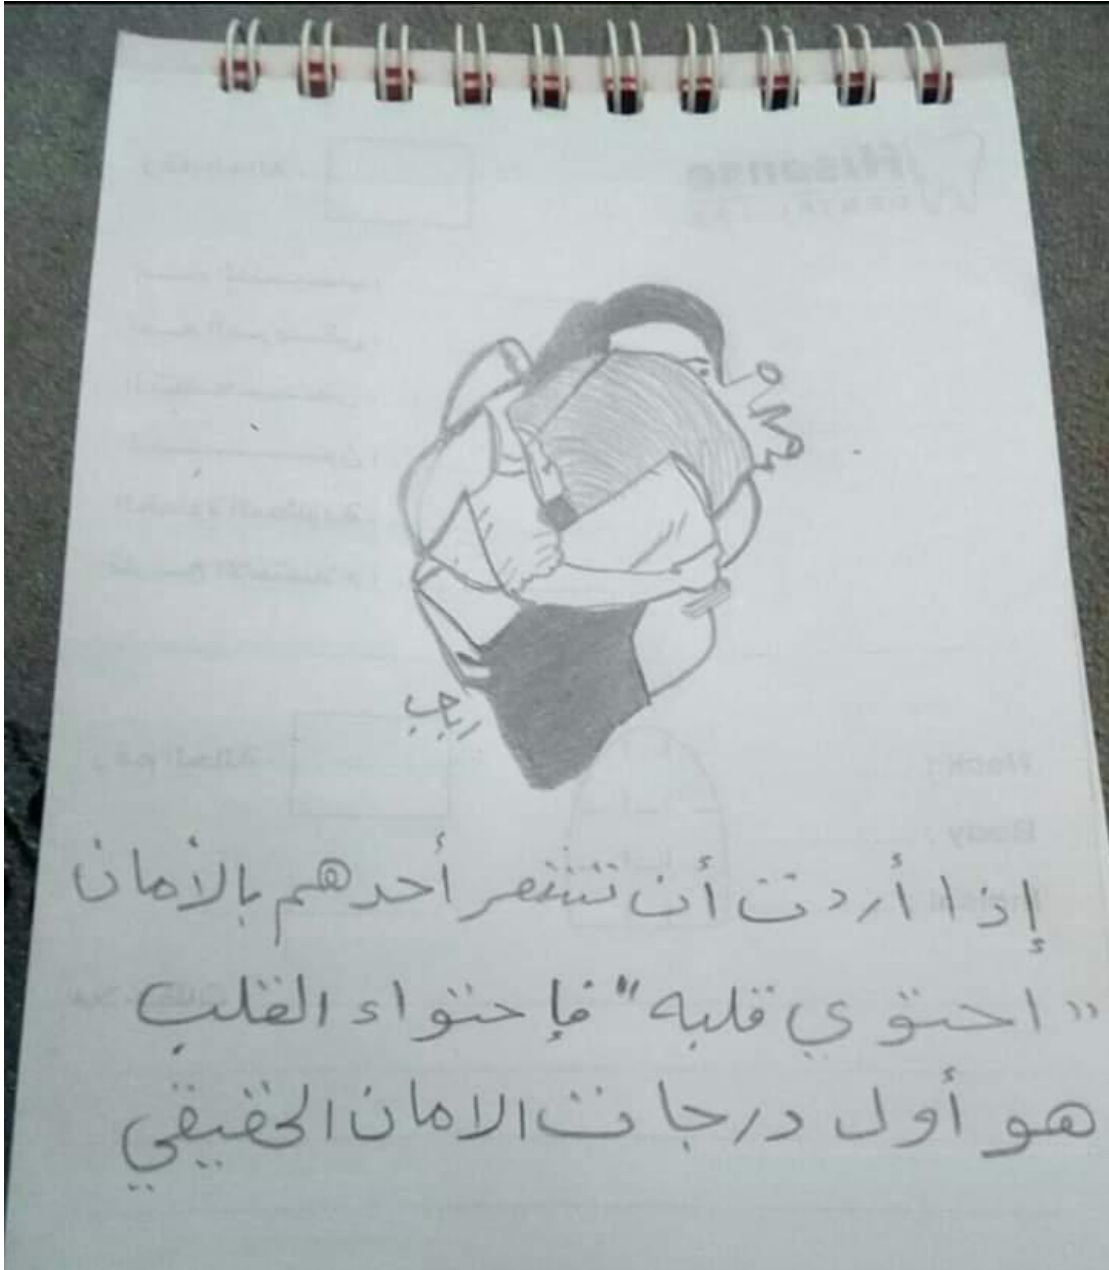 رجب
إذا أردت أن تشعر أحدهم بالأمان
"احتوي قلبه" فإحتواء القلب
هو أول درجات الامان الحقيقي